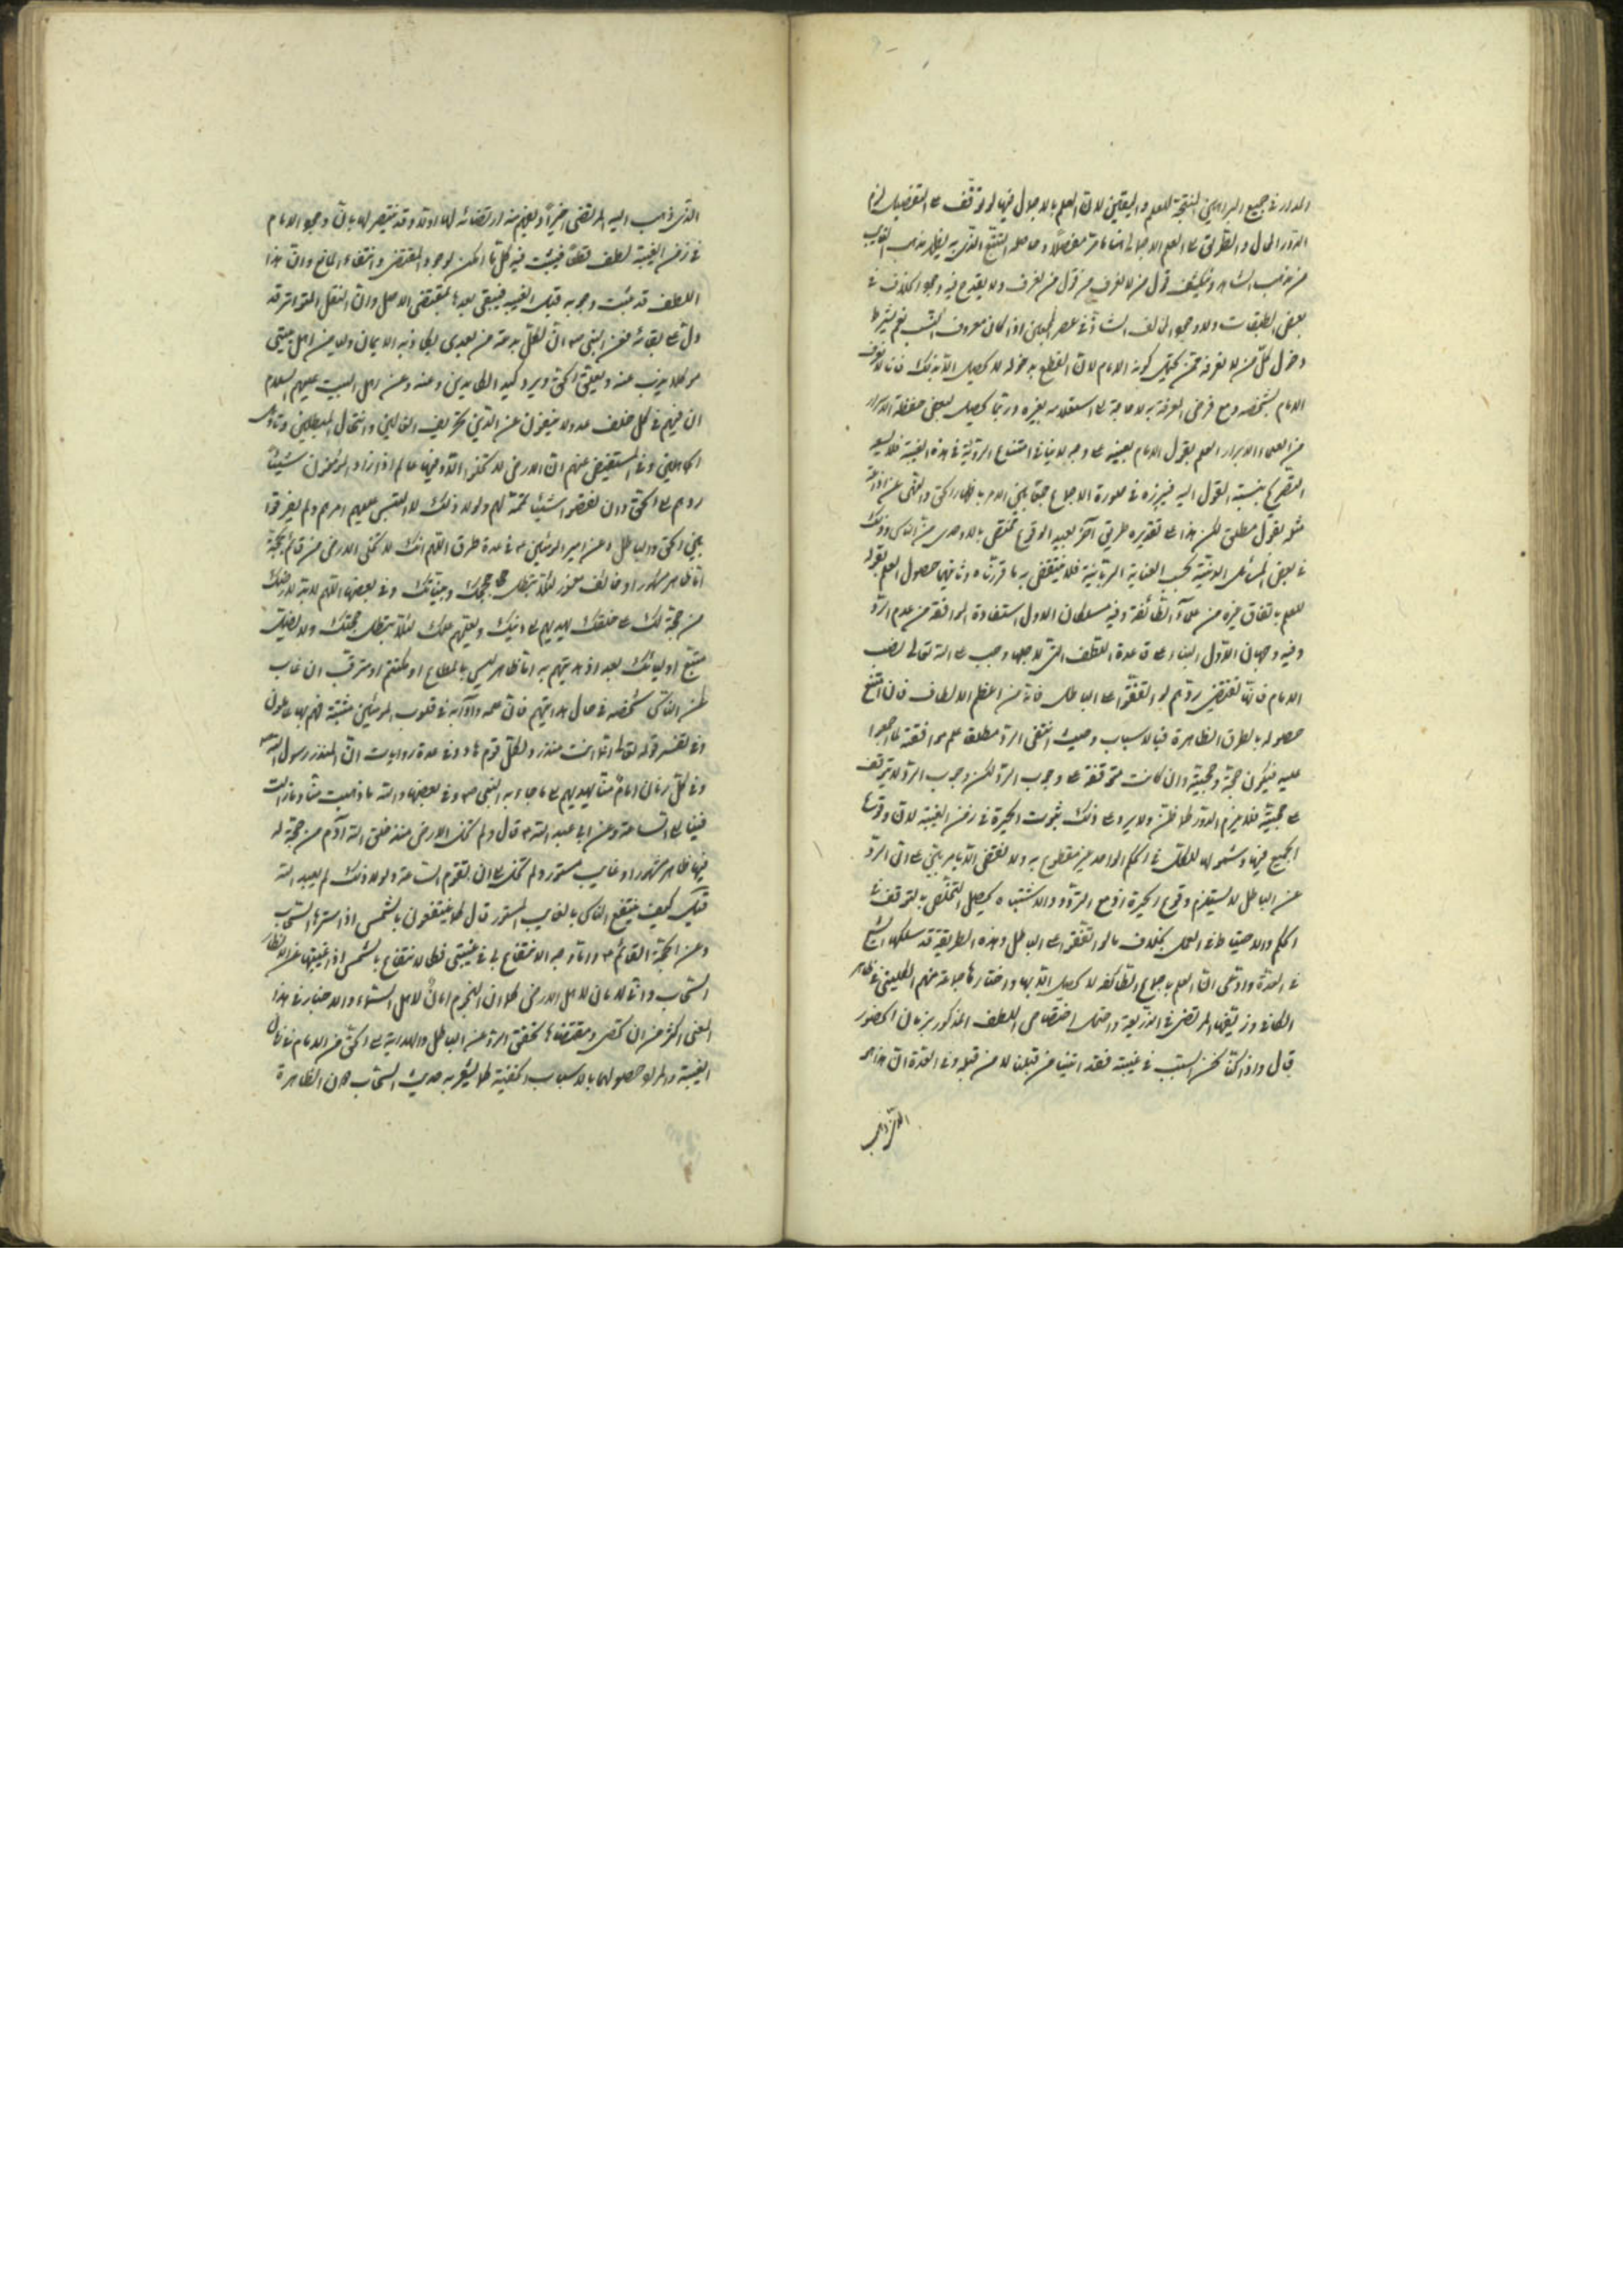 المدار في جميع البراهين المنتجة للعلم واليقين لان العلم بالاجمال فيها لو توقف على التفصيل لزم
الدور المحال والطريق الى العلم الاجمالي اما عامة مفصلا وحاصله التتبع الذي به يظهر مذهب الغايب
من مذهب الشاهد ويكشف قول من لا نعرف من قول من نعرف ولا يقدح فيه وجود الخلاف في
بعض الطبقات ولا وجود المخالف الشاذ في عصر المجمعين اذا كان معروف النسب نعم يشترط
دخول كل من لا نعرفه ممن يحتمل كونه الامام لان القطع بدخوله لا يحصل الا بذلك فانا لا نعرف
الامام بشخصه ومع فرض المعرفة به لا حاجة الى استعلامه بغيره وربما يحصل لبعض حفظة الاسرار
من العلماء الابرار العلم بقول الامام بعينه على وجه لا ينافي امتناع الرؤية في هذه الغيبة فلا يسعه
التصريح بنسبة القول اليه فيبرزه في صورة الاجماع جمعا بين الامر باظهار الحق والنهي عن اذاعة
مثله بقول مطلق لكن هذا على تقديره طريق آخر بعيد الوقوع مختص بالاوحدي من الناس وذلك
في بعض المسائل الدينية بحسب العناية الربانية فلا ينتقض به ما قررناه وثانيها حصول العلم بقوله
للعلم باتفاق غيره من علماء الطائفة وفيه مسلكان الاول استفادة الموافقة من عدم الرد
وفيه وجهان الاول البناء على قاعدة اللطف التي لاجلها وجب على الله تعالى نصب
الامام فانها تقتضي ردهم لو اتفقوا على الباطل فانه من اعظم الالطاف فان امتنع
حصوله بالطرق الظاهرة فبالاسباب وحيث انتفى الرد مطلقا علم موافقته لما اجمعوا
عليه فيكون حجة وحجيته وان كانت متوقفة على وجوب الرد لكن وجوب الرد لا يتوقف
على حجيته فلا يلزم الدور كما ظن ولا يرد على ذلك ثبوت الحيرة في زمن الغيبة لان وقوعها
الجميع فيها وشمولها للكل في الحكم الواحد غير مقطوع به ولا تقتضي الا
عن الباطل لا يستلزم وقوع الحيرة اذ مع التردد والاشتباه يحصل التخلص بالتوقف في
الحكم والاحتياط في العمل بخلاف ما لو اتفقوا على الباطل وهذه الطريقة قد سلكها الشيخ
في العدة وادعى ان العلم باجماع الطائفة لا يحصل الا بها واختارها جماعة منهم الكليني في ظاهر
الكافي وزيفها المرتضى في الذريعة واحتمل اختصاص اللطف المذكور بزمان الحضور
قال واذا كنا نحن السبب في غيبته فقد اتينا من قبلنا لا من قبله وفي العدة ان هذا هو
الذي ذهب
الذي ذهب اليه المرتضى اخيرا ويظهر منه ارتضائه لها اولا وقد ينتصر لها بان وجود الامام
في زمن الغيبة لطف قطعا فيثبت فيه كل ما امكن لوجود المقتضي وانتفاء المانع وان هذا
اللطف قد ثبت وجوبه قبل الغيبة فيبقى بعدها بمقتضى الاصل وان النقل المتواتر قد
دل على بقائه فعن النبي ص ان لكل بدعة من بعدي يكاد بها الايمان وليا من اهل بيتي
موكلا يذب عنه ويعلن الحق ويرد كيد الكائدين وعنه وعن اهل البيت عليهم السلام
ان فيهم في كل خلف عدولا ينفون عن الدين تحريف الغالين وانتحال المبطلين وتاويل
الجاهلين وفي المستفيض عنهم ان الارض لا تخلو الا وفيها عالم اذا زاد المؤمنون شيئا
ردهم الى الحق وان نقصوا شيئا تممه لهم ولولا ذلك لالتبس عليهم امرهم ولم يفرقوا
بين الحق والباطل وعن امير المؤمنين ع في عدة طرق اللهم انك لا تخلي الارض من قائم بحجة
اما ظاهر مشهور او خائف مغمور لئلا تبطل حججك وبيناتك وفي بعضها اللهم لا بد لارضك
من حجة لك على خلقك يهديهم الى دينك ويعلمهم علمك لئلا تبطل حجتك ولا يضل
متبع اوليائك بعد اذ هديتهم به اما ظاهر ليس بالمطاع او مكتتم او مترقب ان غاب
عن الناس شخصه في حال هدايتهم فان علمه وآدابه في قلوب المؤمنين مثبتة فهم بها عاملون
وفي تفسير قوله تعالى انما انت منذر ولكل قوم هاد وفي عدة روايات ان المنذر رسول الله ص
وفي كل زمان امام منا يهديهم الى ما جاء به النبي ص وفي بعضها والله ما ذهبت منا وما زالت
فينا الى الساعة وعن ابي عبد الله ع قال ولم تخل الارض منذ خلق الله آدم من حجة له
فيها ظاهر مشهور او غايب مستور ولم تخل الى ان تقوم الساعة ولولا ذلك لم يعبد الله
قيل كيف ينتفع الناس بالغايب المستور قال كما ينتفعون بالشمس اذا سترها السحاب
وعن الحجة القائم ع واما وجه الانتفاع بي في غيبتي فكالانتفاع بالشمس اذا غيبتها عن الانظار
السحاب واني لامان لاهل الارض كما ان النجوم امان لاهل السماء والاخبار في هذا
المعنى اكثر من ان تحصى ومقتضاها تحقق الرد عن الباطل والهداية الى الحق من الامام في زمان
الغيبة والمراد حصولهما بالاسباب الخفية كما يشعر به حديث السحاب دون الظاهرة